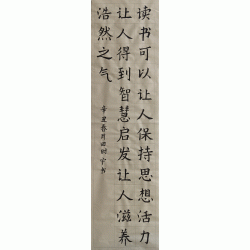 读书可以让人保持思想活力
让人得到智慧启发让人滋养
浩然之气
辛丑春月